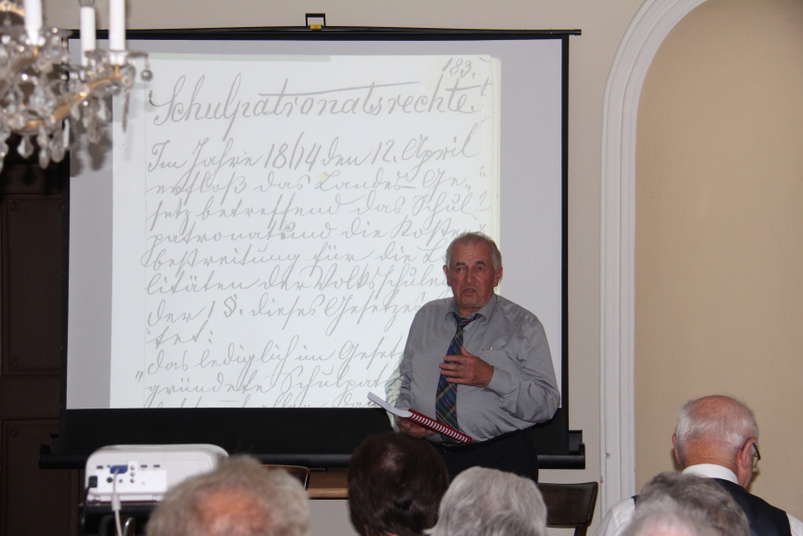 183.
Schulpatronatsrechte.
Im Jahre 18/14 den 12. April
erfloß das Landes-Ge-
setz betreffend das Schul-
patronat und die Kosten
bestreitung für die
litäten der Volksschulen
der 1 §. dieses Gesetzes
tet:
„das lediglich im Gesetz
gründete Schulpat